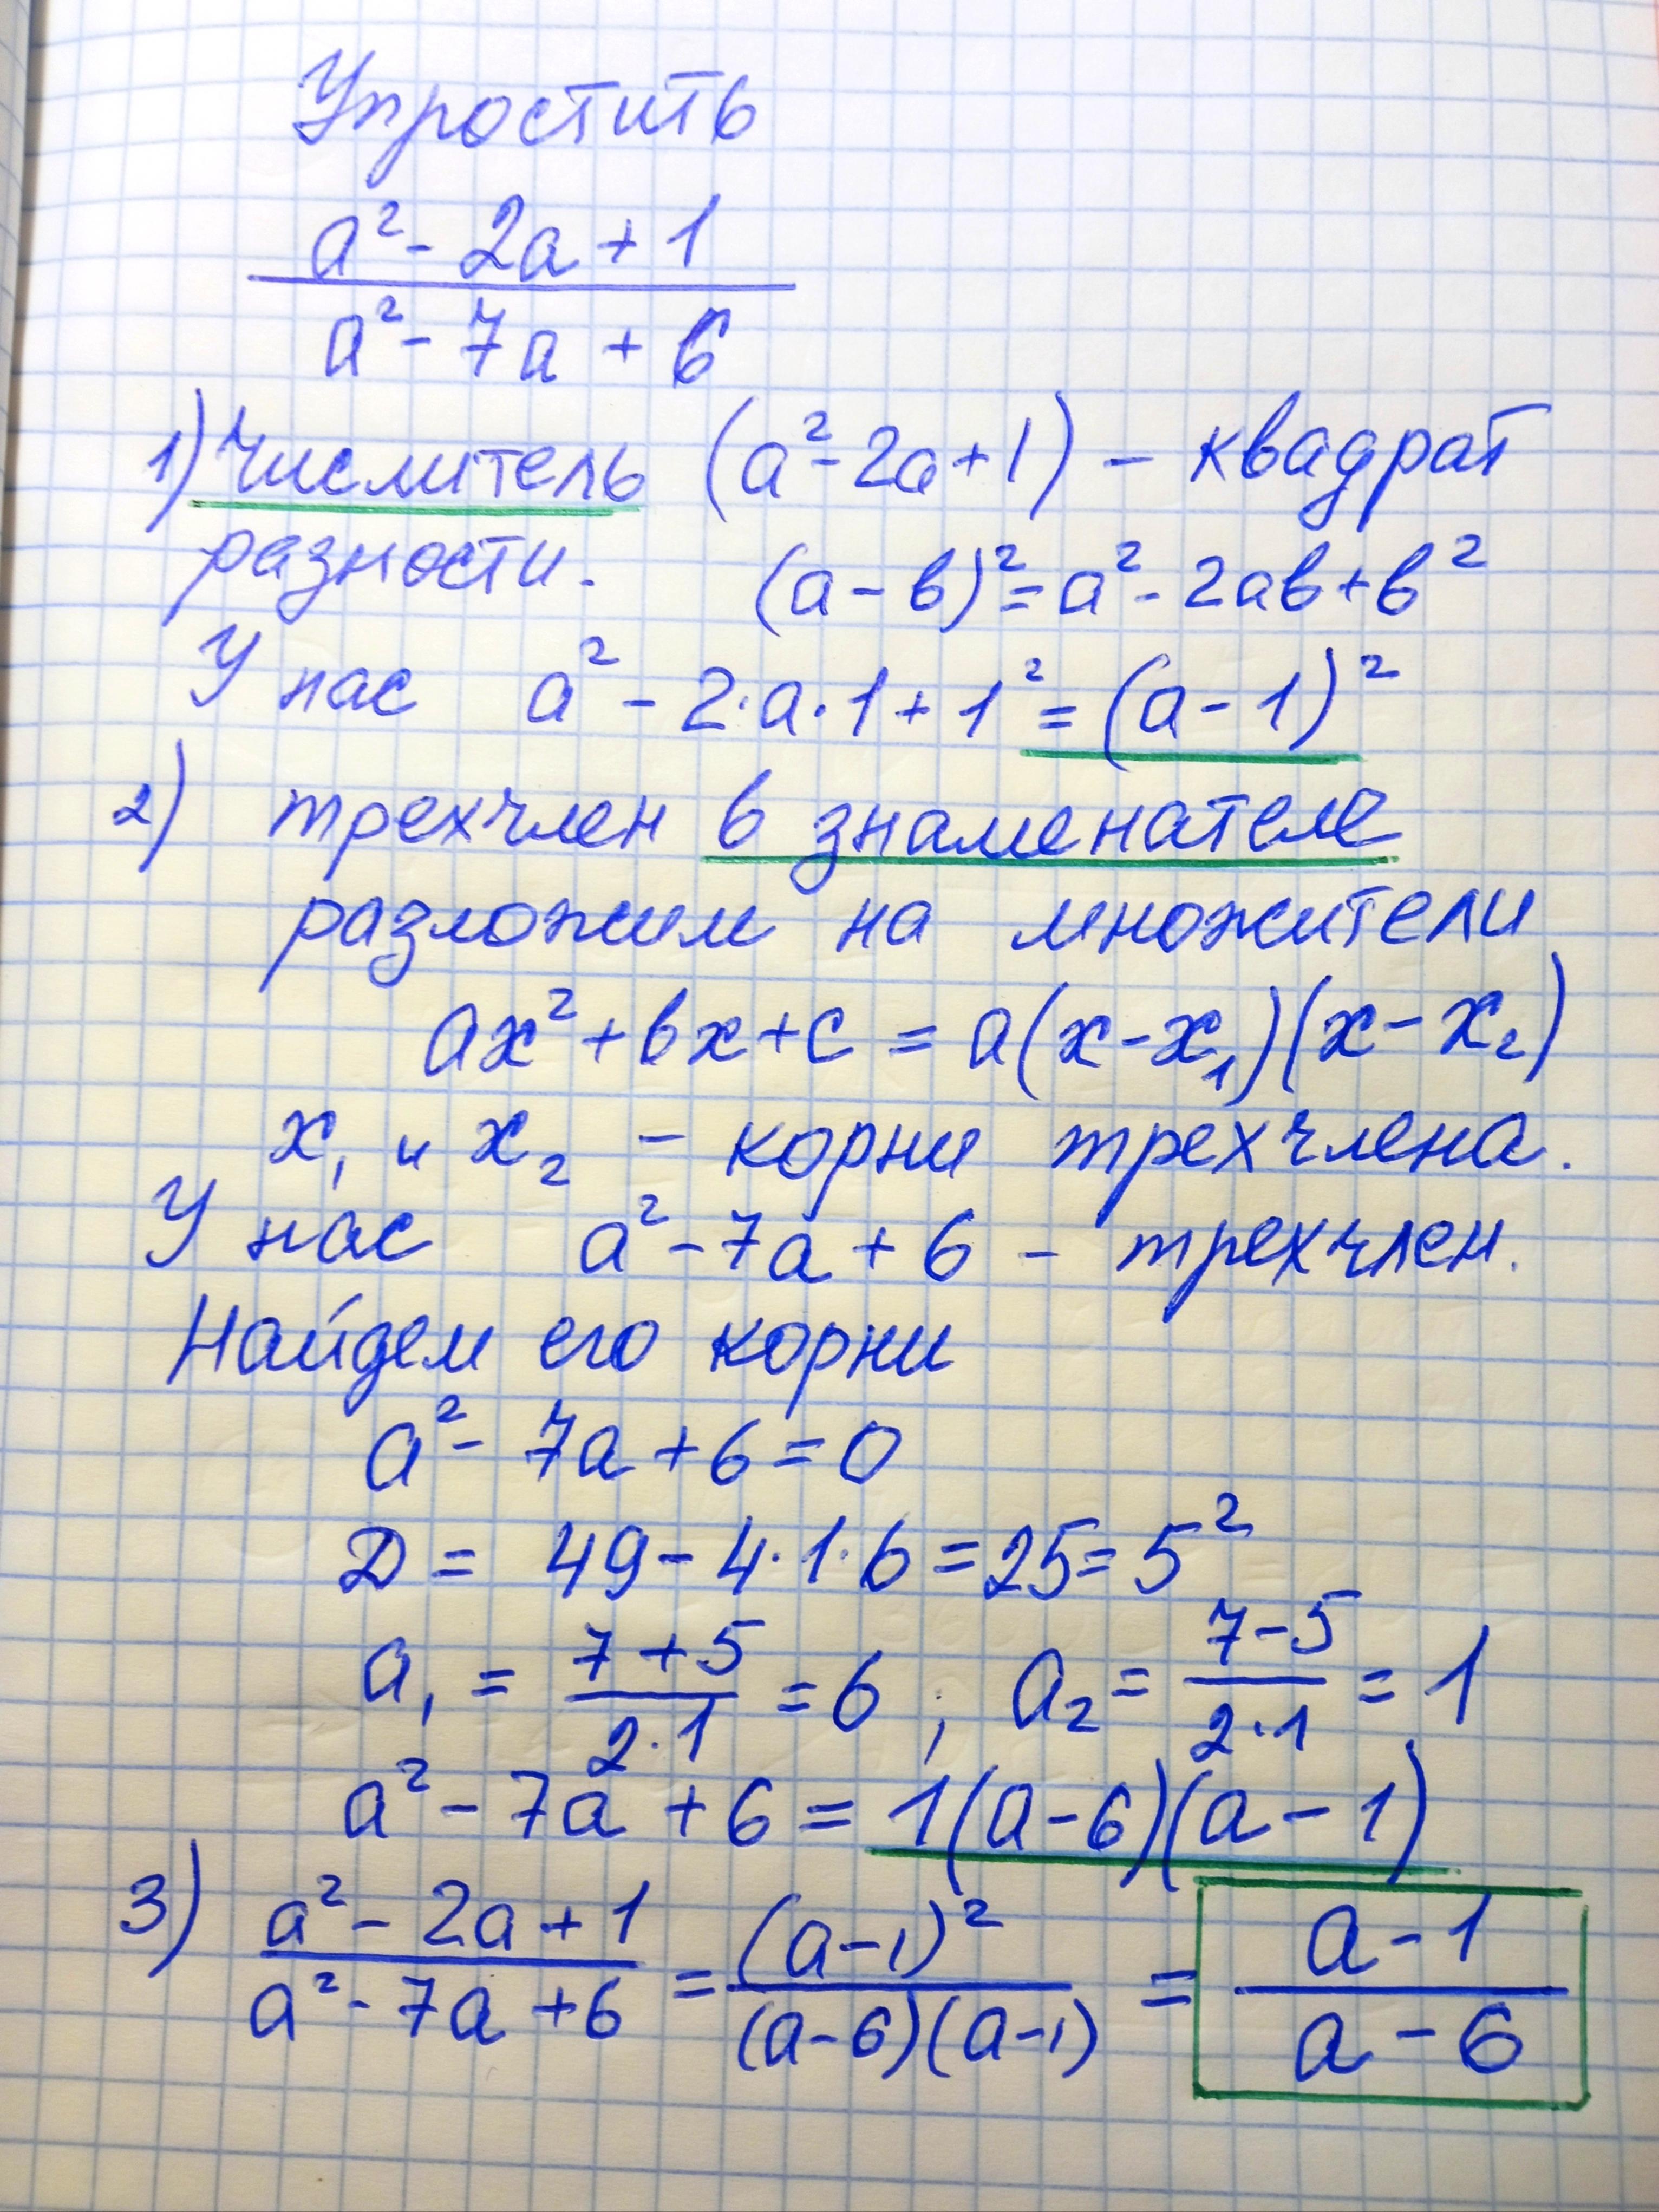 Упростить
a² - 2a + 1
a² - 7a + 6
1) Числитель (a² - 2a + 1) - квадрат
разности. (a - в)² = a² - 2aв + в²
У нас a² - 2·a·1 + 1² = (a - 1)²
2) трехчлен в знаменателе
разложим на множители
ax² + вx + c = a(x - x₁)(x - x₂)
x₁ и x₂ - корни трехчлена.
У нас a² - 7a + 6 - трехчлен.
Найдем его корни
a² - 7a + 6 = 0
Д = 49 - 4·1·6 = 25 = 5²
a₁ = (7 + 5)/(2·1) = 6 ; a₂ = (7 - 5)/(2·1) = 1
a² - 7a + 6 = 1(a - 6)(a - 1)
3) (a² - 2a + 1)/(a² - 7a + 6) = (a - 1)²/((a - 6)(a - 1)) = (a - 1)/(a - 6)